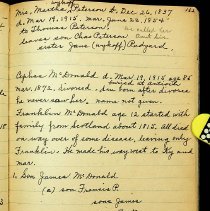 Mrs. Martha, Peterson b. Dec 26, 1837
d. Mar 19, 1915. mar. June 22, 1854
to Thomas Peterson.
leaves son Chas Peterson and his
sister Jane (Nyhoff) Rudyard.
Ophas McDonald d. Mar 19, 1915 age 86
mar 1872, divorced. Son born after divorce
he never saw her. name not given.
Franklin McDonald age 12 started with
family from Scotland about 1815. all died
on way over of some disease, leaving only
Franklin. He made his way west to Ky and
mar.
1. Son James McDonald
(a) son Francis P.
sons James